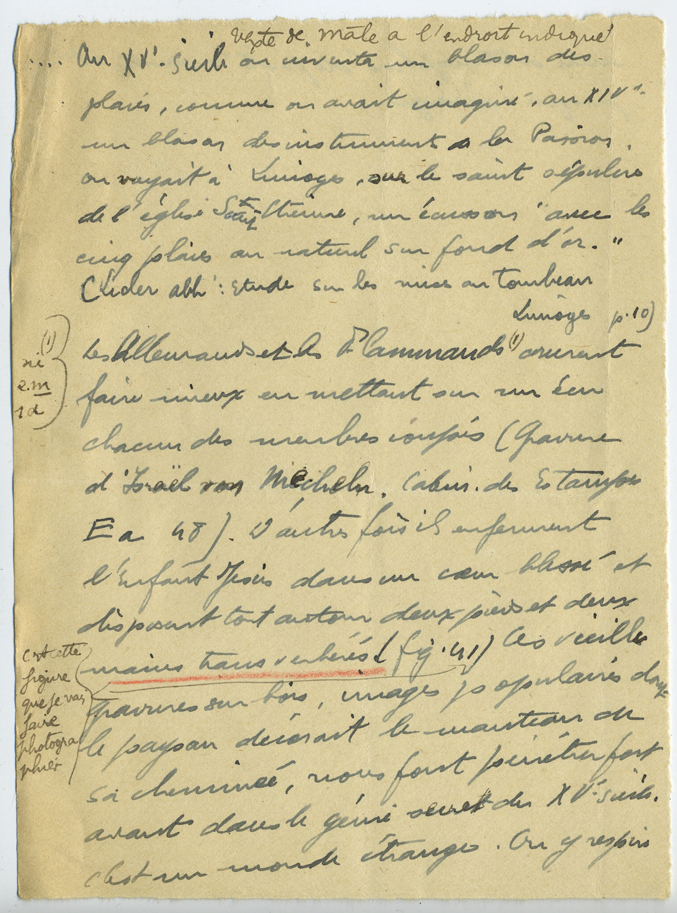 texte de Mâle a l'endroit indiqué
.... Au XVe siècle on inventa un blason des
plaies, comme on avait imaginé, au XIVe
un blason des instruments de la Passion.
on voyait à Limoges, sur le saint sépulcre
de l'église St Etienne, un écusson "avec les
cinq plaies au naturel sur fond d'or."
abbé : Etude sur les mises au Tombeau
Limoges p. 10)
Les Allemands et les Flammands (1) crurent
faire mieux en mettant sur un écu
chacun des membres coupés (Gravure
d'Israël von Mecheln. Cabin. des Estampes
Ea 48). D'autres fois ils enferment
l'Enfant Jésus dans un cœur blessé et
disposent tout autour deux pieds et deux
mains transverbérés (fig. 41) Ces vieilles
gravures sur bois, images populaires dont
le paysan décorait le manteau de
sa cheminée, nous font pénétrer fort
avant dans le génie secret du XVe siècle.
C'est un monde étrange. On y respire
(1)
c'est cette
figure
que je vais
faire
photogra
phier